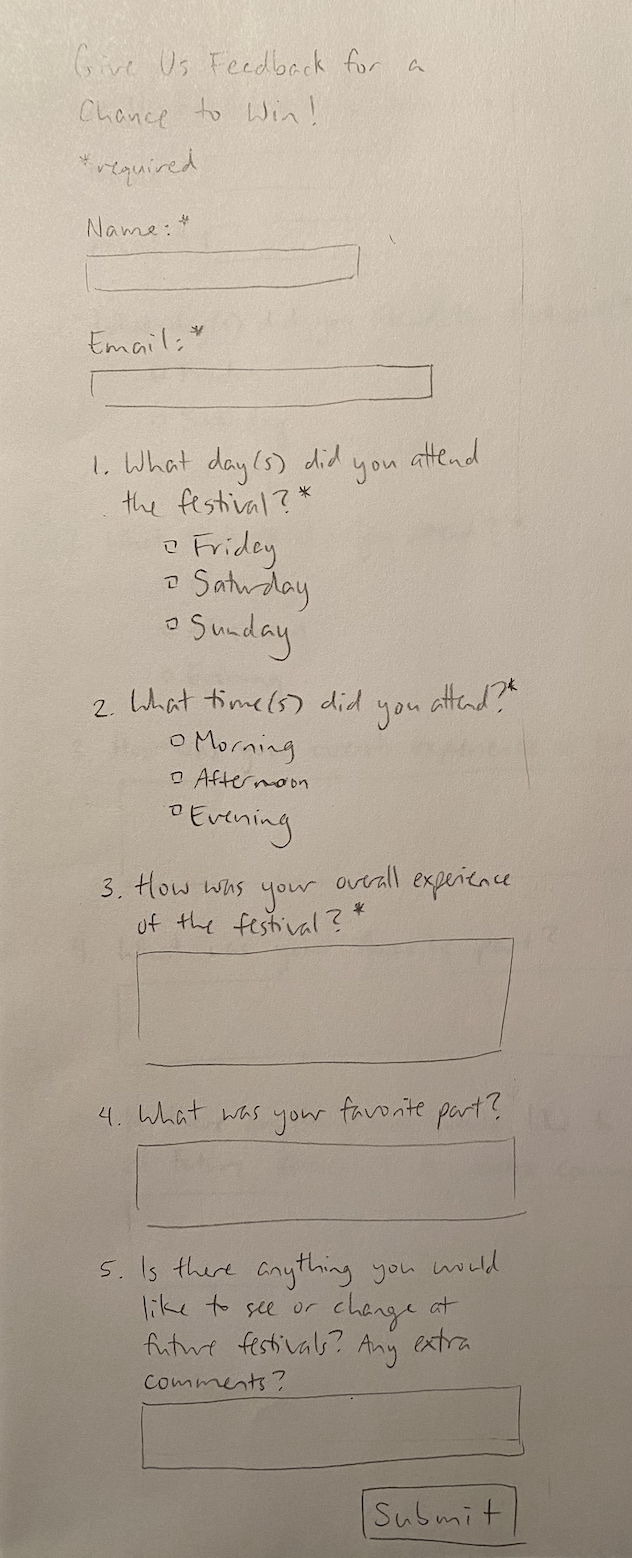 Give Us Feedback for a
Chance to Win!
*required
Name:*
Email:*
1. What day(s) did you attend
the festival?*
Friday
Saturday
Sunday
2. What time(s) did you attend?*
Morning
Afternoon
Evening
3. How was your overall experience
of the festival?*
4. What was your favorite part?
5. Is there anything you would
like to see or change at
future festivals? Any extra
comments?
Submit